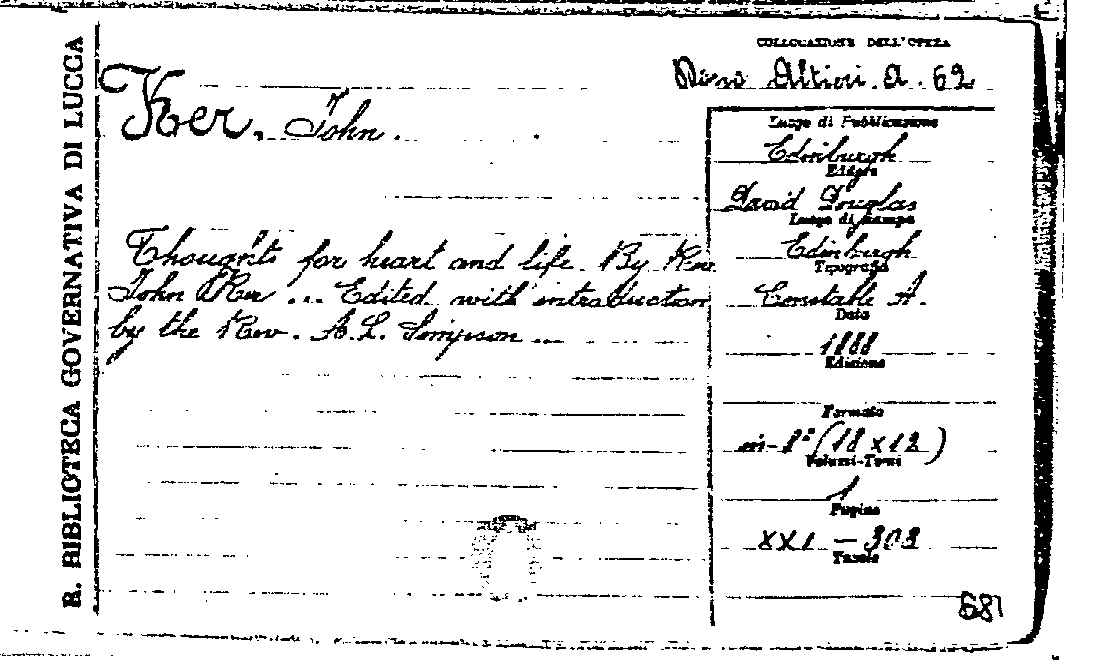 R. BIBLIOTECA GOVERNATIVA DI LUCCA
COLLOCAZIONE DELL'OPERA
Altieri. A. 62
Ker. John.
Thoughts for heart and life. By Rev.
John Ker ... Edited with introduction
by the Rev. A.L. Simpson ...
Luogo di Pubblicazione
Edinburgh
Editore
David Douglas
Luogo di stampa
Edinburgh
Tipografia
Constable A.
Data
1888
Edizione
Formato
in-8° (18 x 12)
Volumi-Tomi
1
Pagine
XXI - 303
Tavole
681